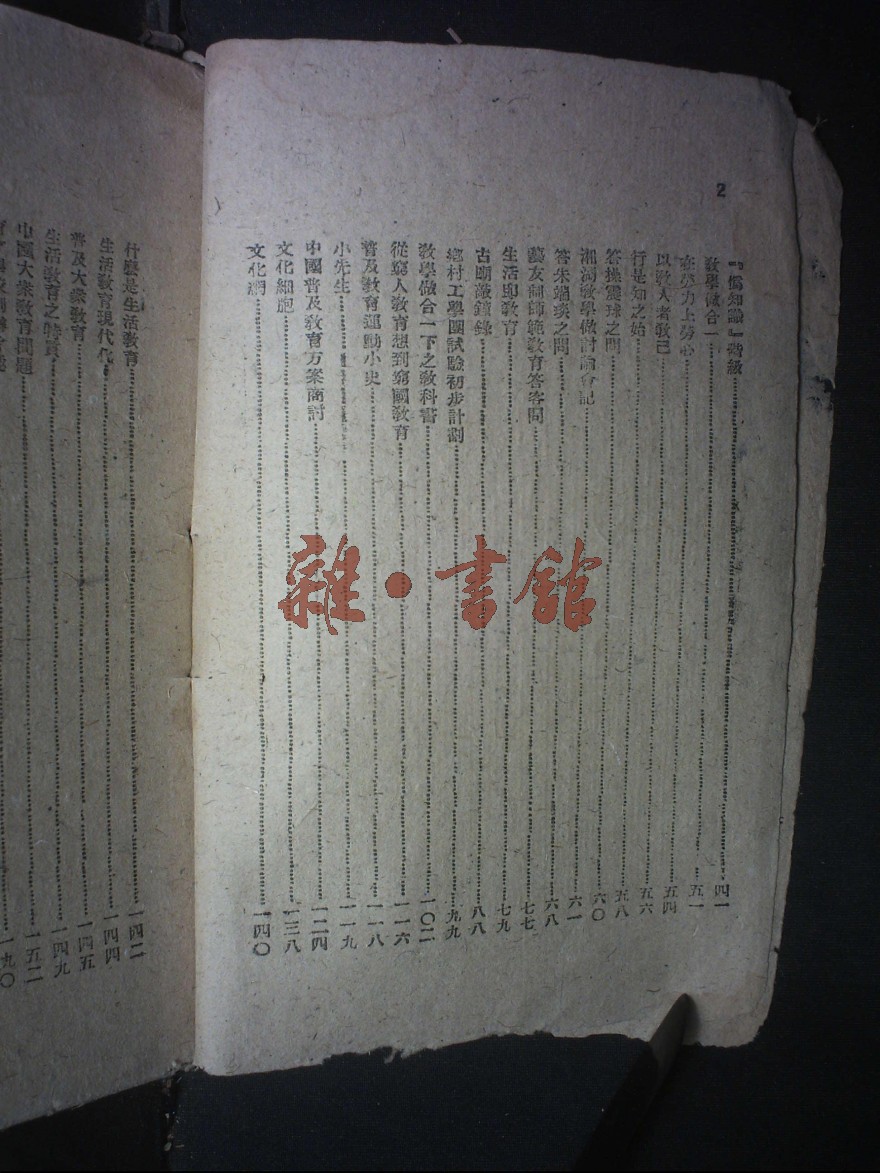 2
『僞知識』階級……四一
教學做合一……五一
在勞力上勞心……五四
以教人者教己……五六
行是知之始……五八
答操震球之問……六〇
湘湖教學做討論會記……六一
答朱端琰之問……六八
藝友制師範教育答客問……七七
生活即教育……七九
古廟敲鐘錄……八八
鄉村工學團試驗初步計劃……九九
教學做合一下之教科書……一〇二
從窮人教育想到窮國教育……一一六
普及教育運動小史……一一八
小先生……一一九
中國普及教育方案商討……一二四
文化細胞……一三八
文化網……一四〇
什麼是生活教育……一四二
生活教育現代化……一四四
普及大衆教育……一四五
生活教育之特質……一四九
中國大衆教育問題……一五二
一九〇
雜·書館